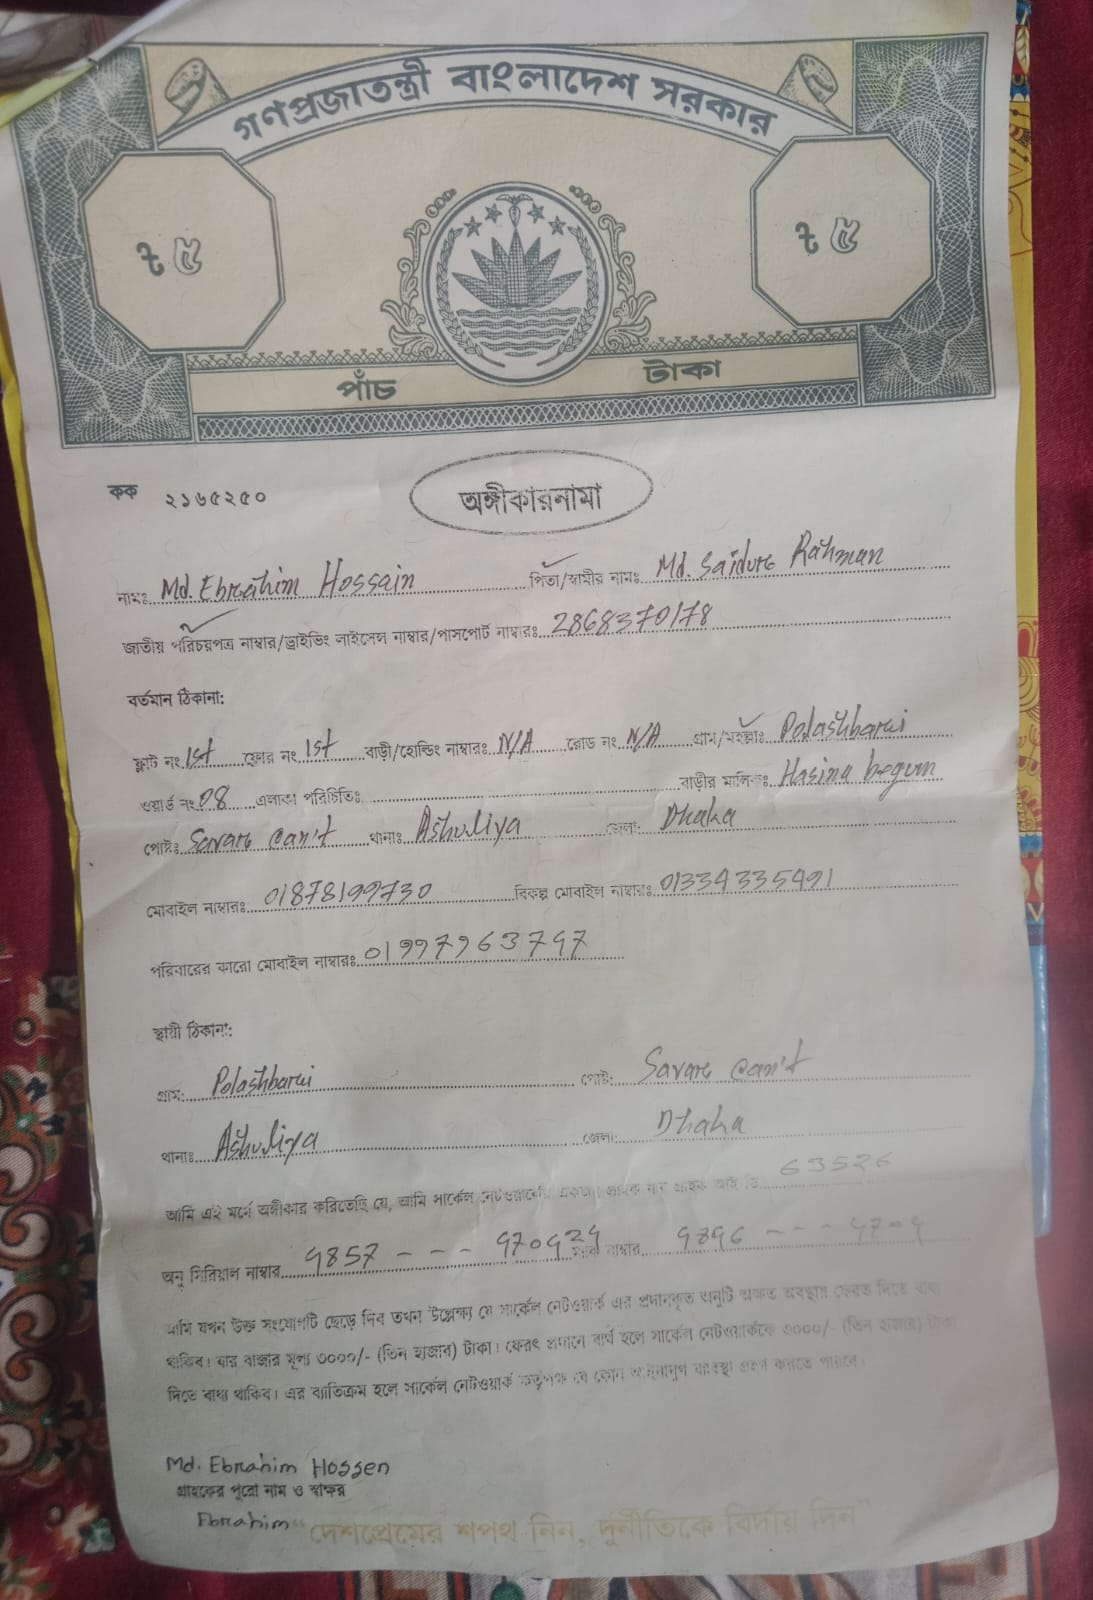 গণপ্রজাতন্ত্রী বাংলাদেশ সরকার
৳ ৫
৳ ৫
পাঁচ টাকা
কক ২১৬৫২৫০
অঙ্গীকারনামা
নামঃ Md. Ebrahim Hossain পিতা/স্বামীর নামঃ Md. Saidure Rahman
জাতীয় পরিচয়পত্র নাম্বার/ড্রাইভিং লাইসেন্স নাম্বার/পাসপোর্ট নাম্বারঃ 2868370178
বর্তমান ঠিকানা:
ফ্লাট নং 1st ফ্লোর নং 1st বাড়ী/হোল্ডিং নাম্বারঃ N/A রোড নং N/A গ্রাম/মহল্লাঃ Polashbari
ওয়ার্ড নং 08 এলাকা পরিচিতিঃ বাড়ীর মালিকঃ Hasina begum
পোষ্টঃ Savare Can't থানাঃ Ashuliya জেলা: Dhaka
মোবাইল নাম্বারঃ 01878199730 বিকল্প মোবাইল নাম্বারঃ 01334335491
পরিবারের কারো মোবাইল নাম্বারঃ 01997963797
স্থায়ী ঠিকানা:
গ্রাম: Polashbari পোষ্ট: Savare Can't
থানাঃ Ashuliya জেলা: Dhaka
আমি এই মর্মে অঙ্গীকার করিতেছি যে, আমি সার্কেল নেটওয়ার্কের একজন গ্রাহক যার গ্রাহক আই ডি 63526
অনু সিরিয়াল নাম্বার নাম্বার
আমি যখন উক্ত সংযোগটি ছেড়ে দিব তখন উল্লেক্ষ্য যে সার্কেল নেটওয়ার্ক এর প্রদানকৃত অনুটি অক্ষত অবস্থায় ফেরত দিতে বাধ্য
থাকিব। যার বাজার মূল্য ৩০০০/- (তিন হাজার) টাকা। ফেরৎ প্রদানে ব্যর্থ হলে সার্কেল নেটওয়ার্ককে ৩০০০/- (তিন হাজার) টাকা
দিতে বাধ্য থাকিব। এর ব্যতিক্রম হলে সার্কেল নেটওয়ার্ক কর্তৃপক্ষ যে কোন আইনানুগ ব্যবস্থা গ্রহণ করতে পারবে।
Md. Ebrahim Hossen
গ্রাহকের পুরো নাম ও স্বাক্ষর
Ebrahim
"দেশপ্রেমের শপথ নিন, দুর্নীতিকে বিদায় দিন"